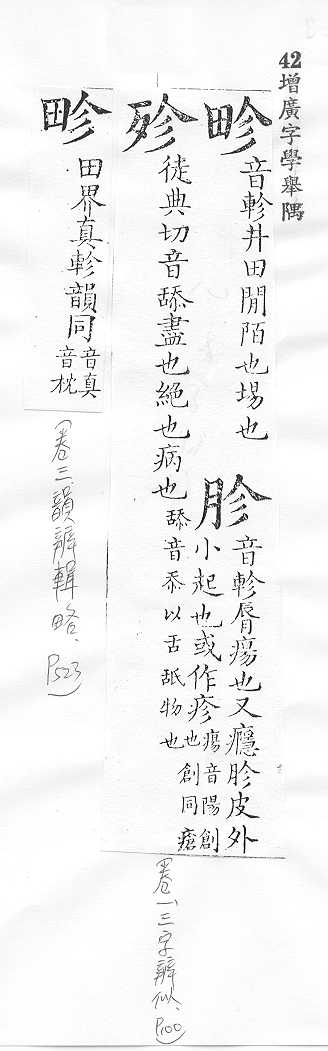 42增廣字學舉隅
畛 音軫井田閒陌也場也
胗 音軫脣瘍也又癮胗皮外
小起也或作疹 瘍音陽創
也創同瘡
殄 徒典切音舔盡也絕也病也 舔
音忝以舌舐物也
畛 田界真軫韻同 音真
音枕
(卷三、韻辨輯略、P523)
(卷一、三字辨似、P100)